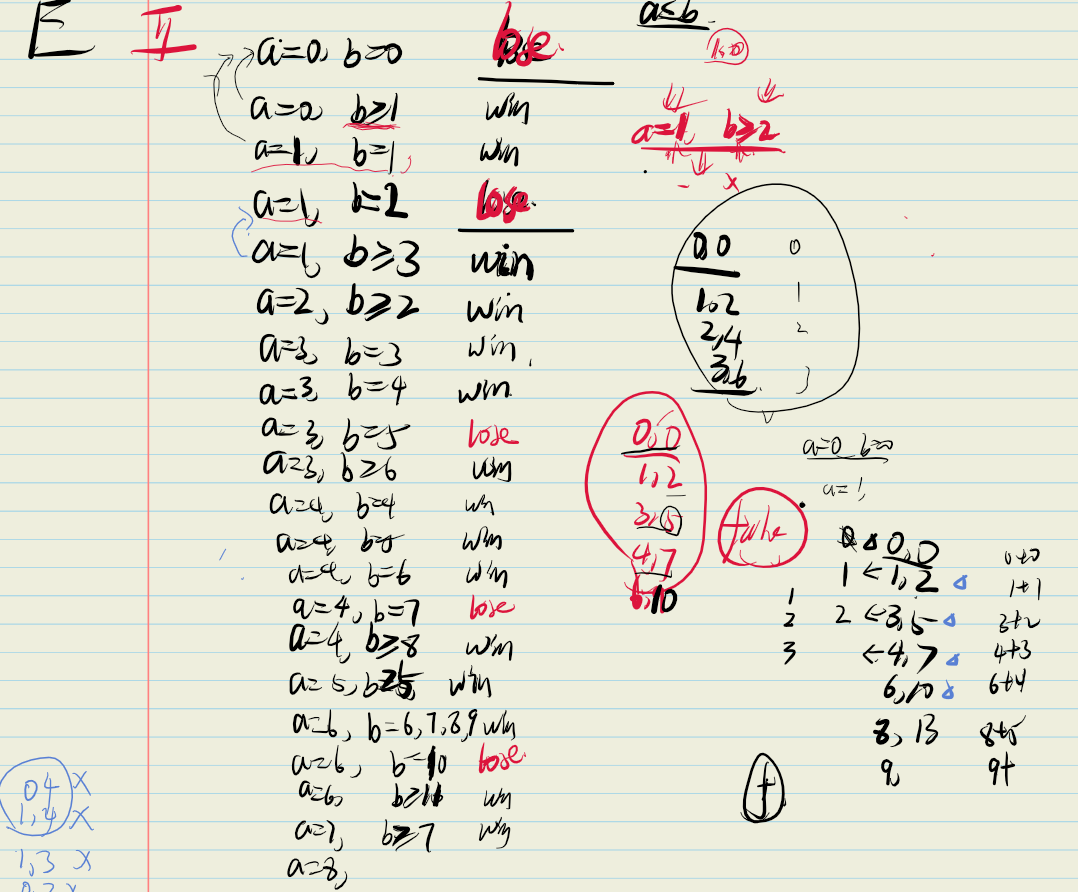 E II
a=0, b=0 lose
a=0, b≥1 win
a=1, b=1, win
a=1, b=2 lose
a=1, b≥3 win
a=2, b≥2 win
a=3, b=3 win
a=3, b=4 win
a=3, b=5 lose
a=3, b≥6 win
a=4, b=4 win
a=4, b=5 win
a=4, b=6 win
a=4, b=7 lose
a=4, b≥8 win
a=5, b≥5, win
a=6, b=6,7,8,9 win
a=6, b=10 lose
a=6, b≥11 win
a=7, b≥7 win
a=8,
a≤b
a=1, b≥2
- x
0,0 0
1,2 1
2,4 2
3,6 3
0,0
1,2
3,5
4,7
6,10
a=0 b=0
a=1,
0,0 0+0
1 ← 1,2 1+1
1
2 2 ← 3,5 3+2
3 ← 4,7 4+3
6,10 6+4
8, 13 8+5
9, 9+
04 X
1,4 X
1,3 X